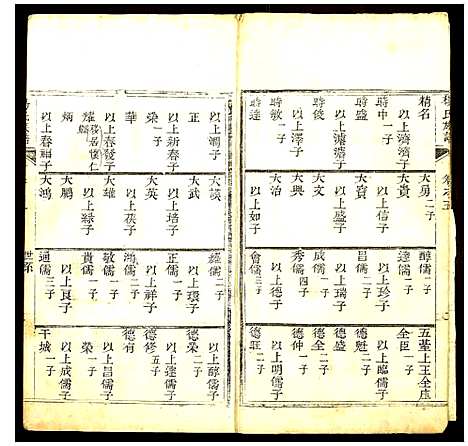 精名
以上濟濟子
時中 一子
以上濟濟子
時盛
時俊
以上澤子
時敏 一子
時達
以上潤子
正
以上新春子
榮 一子
華
以上春發子
耀 移居懷仁
炳
以上春福子
大勇 二子
大貴
以上信子
大寶
以上盛子
大文
大興
大治
以上如子
大英
大武
以上培子
大雄
以上茯子
大鵬
以上綠子
大鴻
醇儒 二子
達儒 一子
以上珍子
昌儒 二子
以上瑞子
成儒 一子
秀儒 四子
以上德子
會儒 三子
以上環子
正儒 一子
以上祥子
鴻儒 二子
敬儒 一子
貴儒 一子
以上良子
通儒 三子
世系
五堇上王全庄
全臣 一子
以上臨儒子
德魁 二子
德盛
德全 二子
德仲 一子
以上明儒子
德旺 二子
以上醇儒子
德榮 二子
以上達儒子
德修 五子
德有
以上昌儒子
榮 一子
以上成儒子
干城 一子